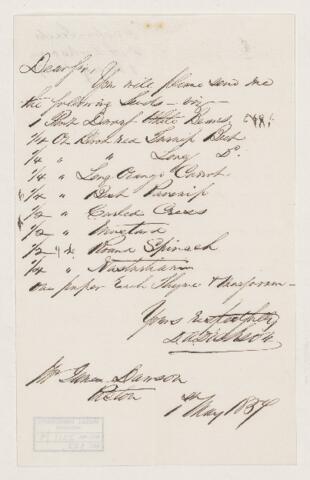 Dear Sir,
You will please send me
the following Seeds – viz –
1 Pint Dwarf White Beans
1/4 Oz Blood red Turnip Beet
1/4 " " Long Do.
1/4 " Long Orange Carrot
1/4 " Best Parsnip
1/2 " Curled Cress
1/2 " Mustard
1/2 " Round Spinach
1/4 " Nasturtium
one paper Each Thyme &
Yours Respectfully
Mr James Dawson
Picton
1st May 1859